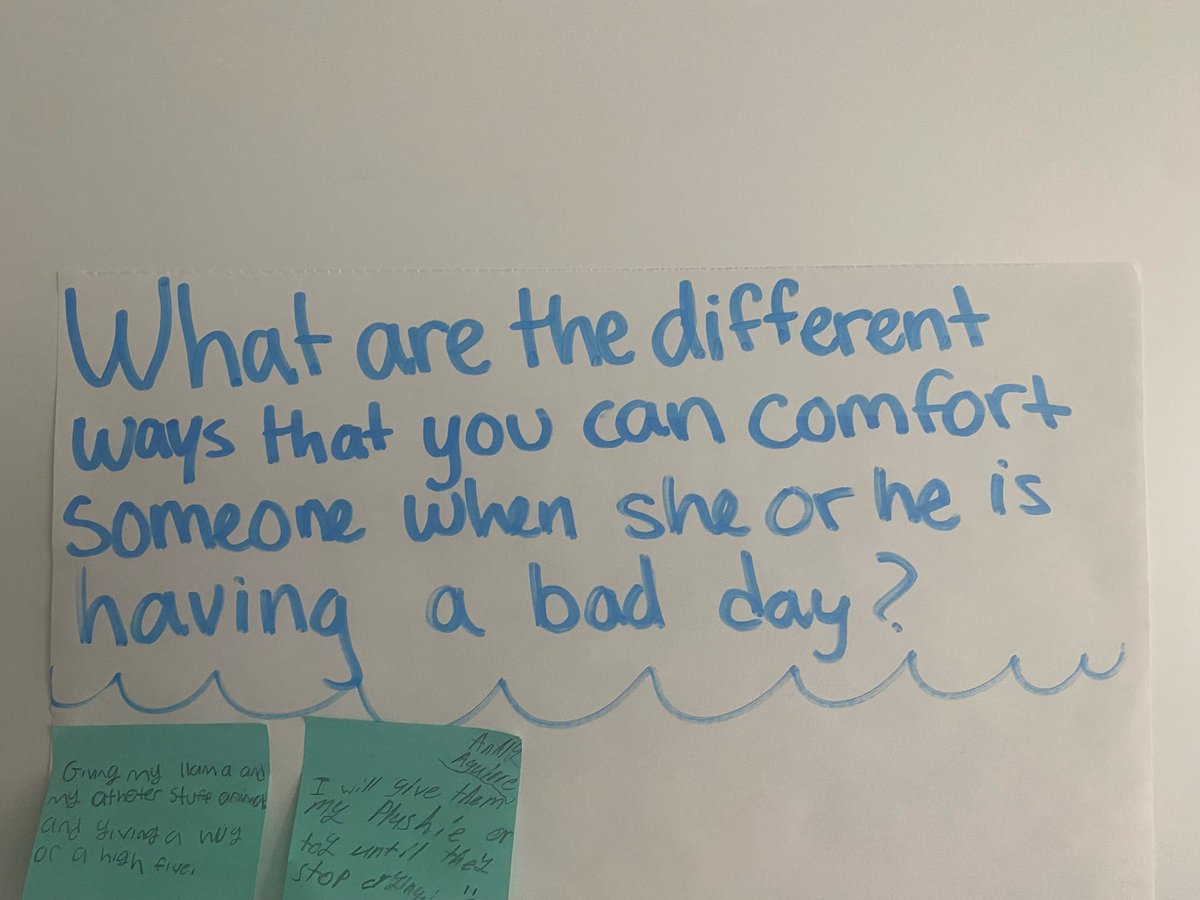 What are the different
ways that you can comfort
someone when she or he is
having a bad day?
Giving my llama and
my atheter stuff animal
and giving a hug
or a high five.
Andy
Aguirre
I will give them
my Plushie or
toy until they
stop crying.